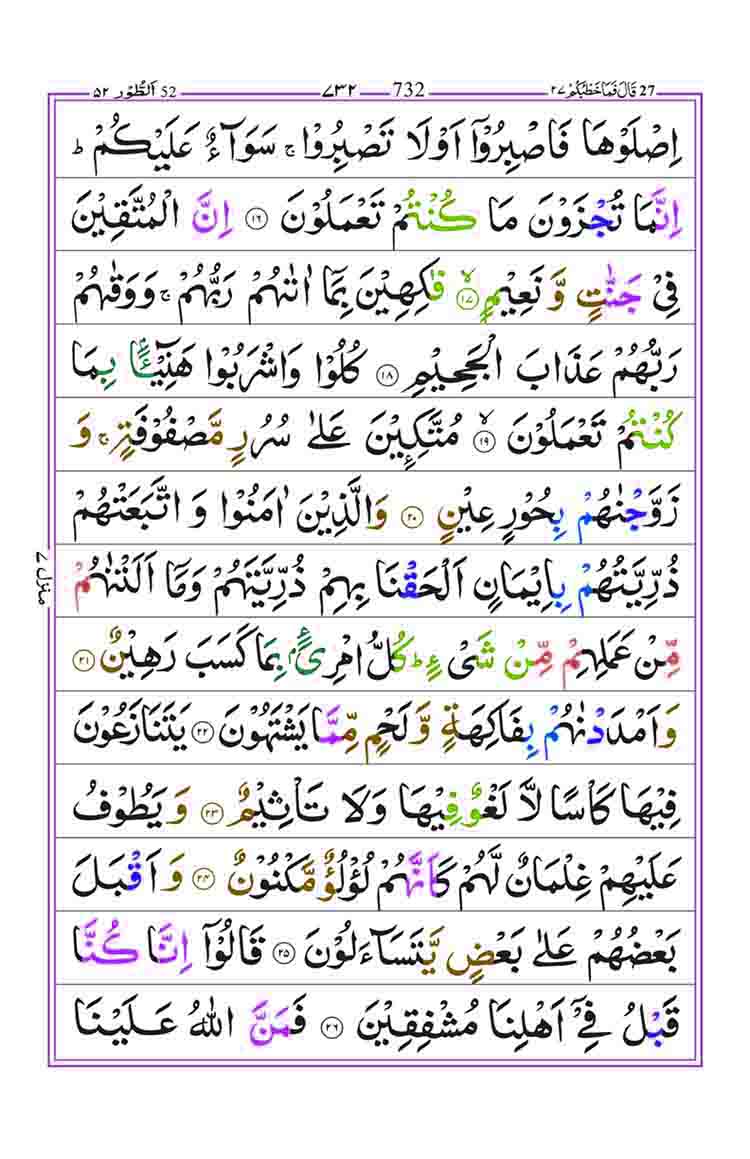 27 قَالَ فَمَا خَطْبُكُمْ ٢٧ 732 ٧٣٢ 52 اَلطُّوْر ٥٢
اِصْلَوْهَا فَاصْبِرُوْۤا اَوْلَا تَصْبِرُوْا ۚ سَوَآءٌ عَلَيْكُمْ ؕ
اِنَّمَا تُجْزَوْنَ مَا كُنْتُمْ تَعْمَلُوْنَ ۝١٦ اِنَّ الْمُتَّقِيْنَ
فِيْ جَنّٰتٍ وَّ نَعِيْمٍ ۙ۝١٧ فٰكِهِيْنَ بِمَاۤ اٰتٰىهُمْ رَبُّهُمْ ۚ وَوَقٰىهُمْ
رَبُّهُمْ عَذَابَ الْجَحِيْمِ ۝١٨ كُلُوْا وَاشْرَبُوْا هَنِيْٓـًٔۢا بِمَا
كُنْتُمْ تَعْمَلُوْنَ ۙ۝١٩ مُتَّكِـِٕيْنَ عَلٰى سُرُرٍ مَّصْفُوْفَةٍ ۚ وَ
زَوَّجْنٰهُمْ بِحُوْرٍ عِيْنٍ ۝٢٠ وَالَّذِيْنَ اٰمَنُوْا وَ اتَّبَعَتْهُمْ
ذُرِّيَّتُهُمْ بِاِيْمَانٍ اَلْحَقْنَا بِهِمْ ذُرِّيَّتَهُمْ وَمَاۤ اَلَتْنٰهُمْ
مِّنْ عَمَلِهِمْ مِّنْ شَيْءٍ ؕ كُلُّ امْرِئٍۭ بِمَا كَسَبَ رَهِيْنٌ ۝٢١
وَاَمْدَدْنٰهُمْ بِفَاكِهَةٍ وَّلَحْمٍ مِّمَّا يَشْتَهُوْنَ ۝٢٢ يَتَنَازَعُوْنَ
فِيْهَا كَاْسًا لَّا لَغْوٌ فِيْهَا وَلَا تَاْثِيْمٌ ۝٢٣ وَ يَطُوْفُ
عَلَيْهِمْ غِلْمَانٌ لَّهُمْ كَاَنَّهُمْ لُؤْلُؤٌ مَّكْنُوْنٌ ۝٢٤ وَ اَقْبَلَ
بَعْضُهُمْ عَلٰى بَعْضٍ يَّتَسَآءَلُوْنَ ۝٢٥ قَالُوْۤا اِنَّا كُنَّا
قَبْلُ فِيْۤ اَهْلِنَا مُشْفِقِيْنَ ۝٢٦ فَمَنَّ اللّٰهُ عَلَيْنَا
منزل ٧